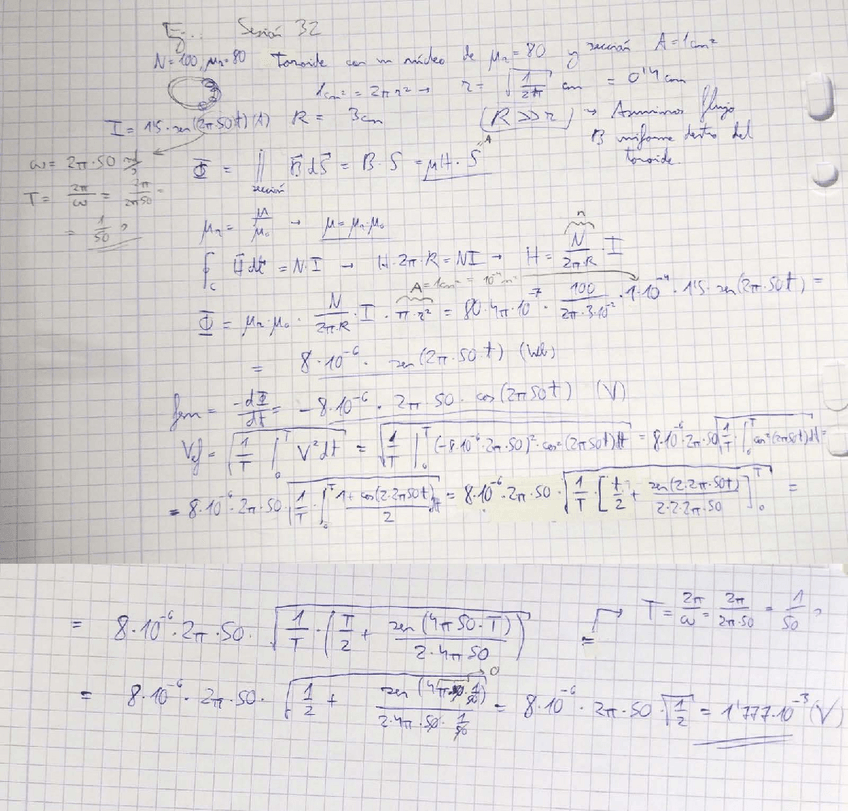 Ej.: Sesión 32
N=100, μr=80 Toroide con un núcleo de μr=80 y sección A=1cm²
1cm² = 2πr² → r = √(1/2π) cm = 0'4cm
I = 1'5·sen(2π50t)(A) R = 3cm (R>>r) → Asumimos flujo
B uniforme dentro del
toroide.
ω = 2π·50 rad/s
T = 2π/ω = 2π/2π50 =
= 1/50 s
Φ = ∬sección B⃗ dS⃗ = B·S = μH·S
A
μr = μ/μ0 → μ = μr·μ0
∮c H⃗ dℓ⃗ = N·I → H·2πR = NI → H = N/2πR · I
n
A=1cm² = 10⁻⁴m²
Φ = μr·μ0 · N/2πR · I · π·r² = 80·4π·10⁻⁷ · 100/2π·3·10⁻² · 1·10⁻⁴ · 1'5·sen(2π·50t) =
= 8·10⁻⁶ · sen(2π·50t) (Wb)
fem = -dΦ/dt = -8·10⁻⁶ · 2π·50·cos(2π50t) (V)
Vef = √(1/T ∫₀ᵀ V²dt) = √(1/T ∫₀ᵀ (-8·10⁻⁶·2π·50)²·cos²(2π50t)dt) = 8·10⁻⁶·2π·50 √(1/T·∫₀ᵀ cos²(2π50t)dt) =
= 8·10⁻⁶·2π·50 √(1/T·∫₀ᵀ 1+cos(2·2π50t)/2 dt) = 8·10⁻⁶·2π·50·√(1/T·[t/2 + sen(2·2π·50t)/2·2·2π·50]₀ᵀ) =
= 8·10⁻⁶·2π·50·√(1/T·(T/2 + sen(4π50·T)/2·4π50)) = T = 2π/ω = 2π/2π·50 = 1/50 s
= 8·10⁻⁶·2π·50·√(1/2 + sen(4π·50·1/50)/2·4π·50·1/50) = 8·10⁻⁶·2π·50·√(1/2) = 1'777·10⁻³(V)
0